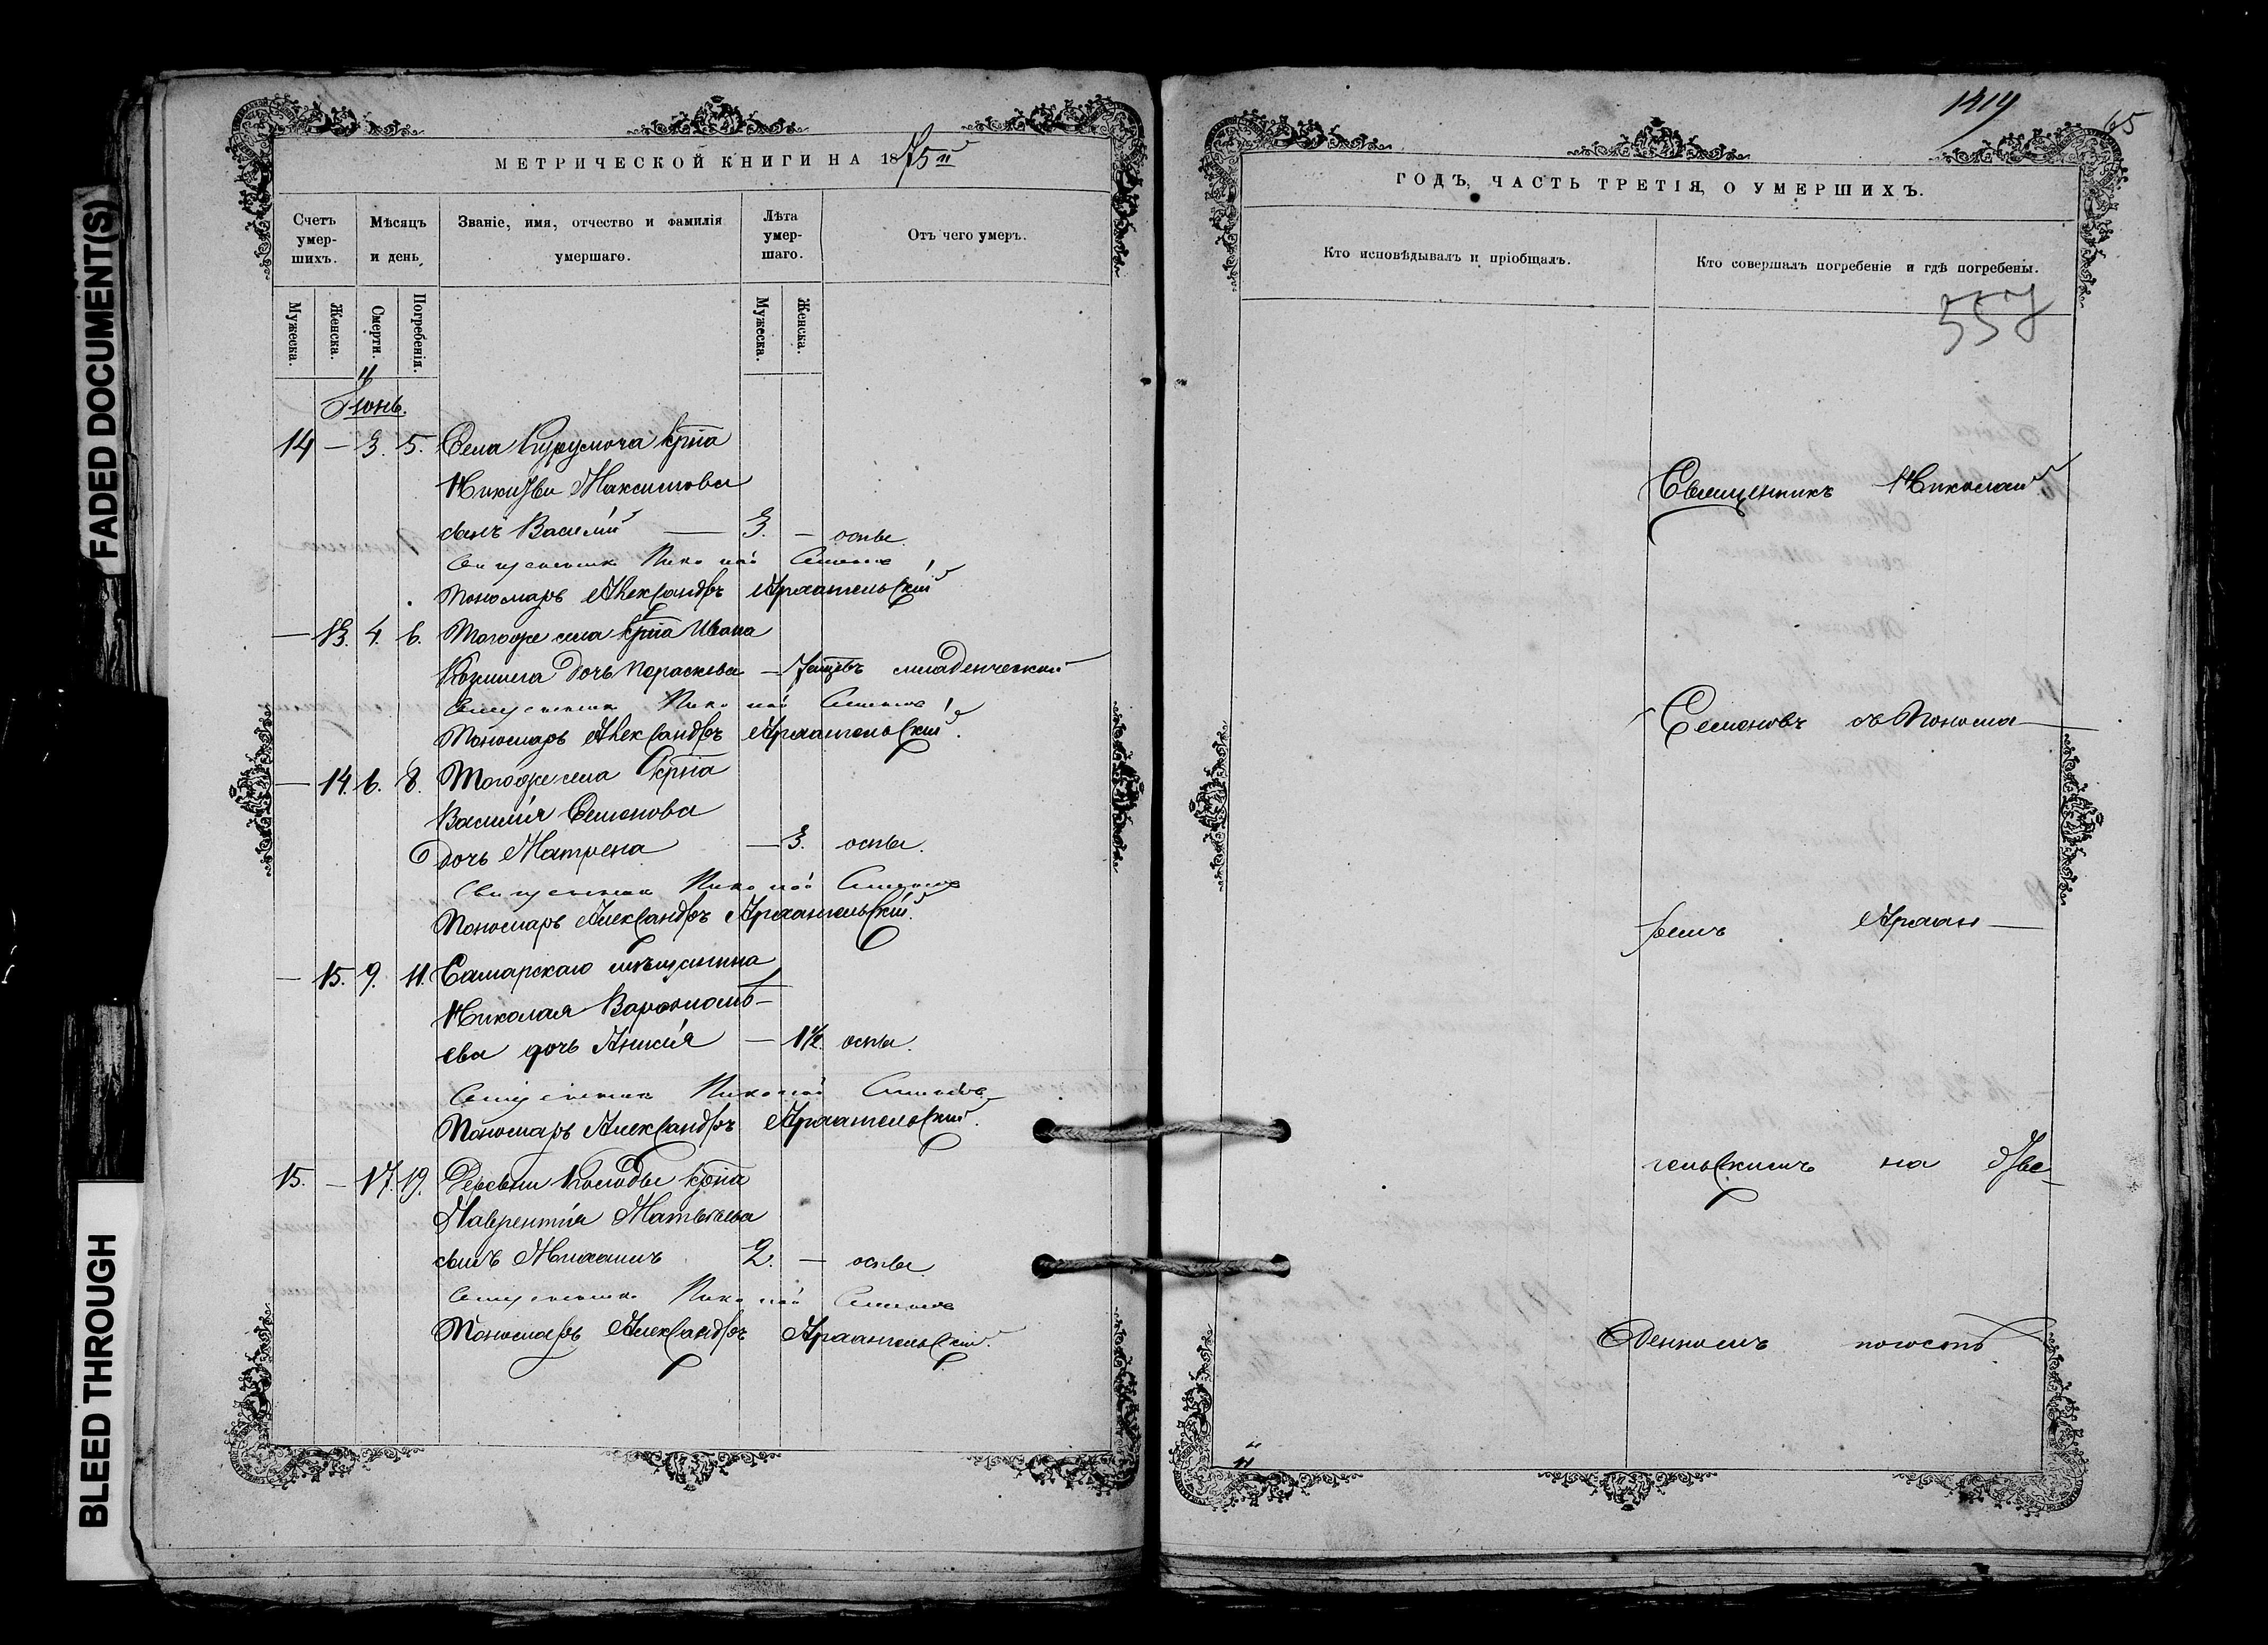 FADED DOCUMENT(S)
BLEED THROUGH
МЕТРИЧЕСКОЙ КНИГИ НА 1875й
Счетъ умер-шихъ.
Мѣсяцъ и день
Званіе, имя, отчество и фамилія умершаго.
Лѣта умер-шаго.
Отъ чего умеръ.
Мужеска.
Женска.
Смерти.
Погребенія.
Мужеска.
Женска.
Іюнь.
14 — 3. 5. Села Курумоча крна
Никиты Максимова
сынъ Василій — 3. — оспы.
Священникъ Николай Семеновъ
Пономарь Александръ Архангельскій
— 13. 4. 6. Тогоже села крна Ивана
дочь Параскева — младенческой
Священникъ Николай Семеновъ
Пономарь Александръ Архангельскій.
— 14. 6. 8. Тогоже села крна
Василія Семенова
дочь Матрена — 3. оспы.
Священникъ Николай Семеновъ
Пономарь Александръ Архангельскій.
— 15. 9. 11. Самарскаго мѣщанина
Николая Варѳоломѣ-
ева дочь Анисія — 1½. оспы.
Священникъ Николай Семеновъ
Пономарь Александръ Архангельскій.
15. — 17. 19. Деревни крна
Лаврентія Матвѣева
сынъ Михаилъ 2. — оспы.
Священникъ Николай Семеновъ
Пономарь Александръ Архангельскій.
1419
65
ГОДЪ, ЧАСТЬ ТРЕТІЯ, О УМЕРШИХЪ.
Кто исповѣдывалъ и пріобщалъ.
Кто совершалъ погребеніе и гдѣ погребены.
557
Священникъ Николай
Семеновъ съ Понома-
ремъ Архан-
гельскимъ на отве-
денномъ погостѣ